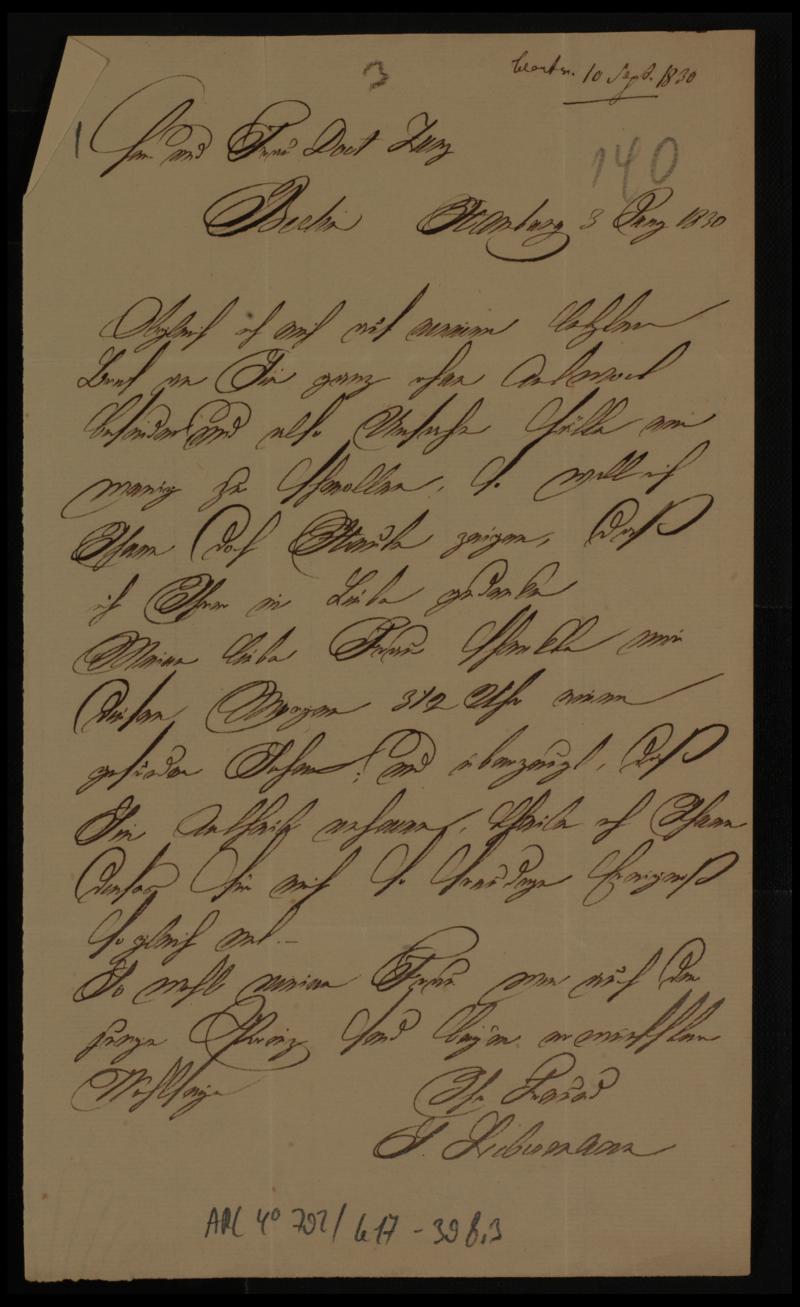 beantw. 10 Sept. 1830
3
140
1
Herr und Frau Doct Zunz
Berlin Hamburg 3 Juny 1830
Obgleich ich mich auf meinen letzten
Brief an Sie ganz ohne Antwort
befinde und also Ursache hätte ein
wenig zu schmollen, so will ich
Ihnen doch Heute zeigen, daß
ich Ihrer in Liebe gedenke
Meine liebe Frau schenkte mir
diesen Morgen 3 1/2 Uhr einen
gesunden Sohn, und überzeugt, daß
Sie Antheil nehmen, theile ich Ihnen
dieses für mich so freudige Ereigniß
sogleich mit.-
So wohl meine Frau wie auch der
junge Prinz sind beyde erwünscht
Wohlseyn
Ihr Freund
J. Liebermann
ARC 4° 792/ G 17 - 39 8.3